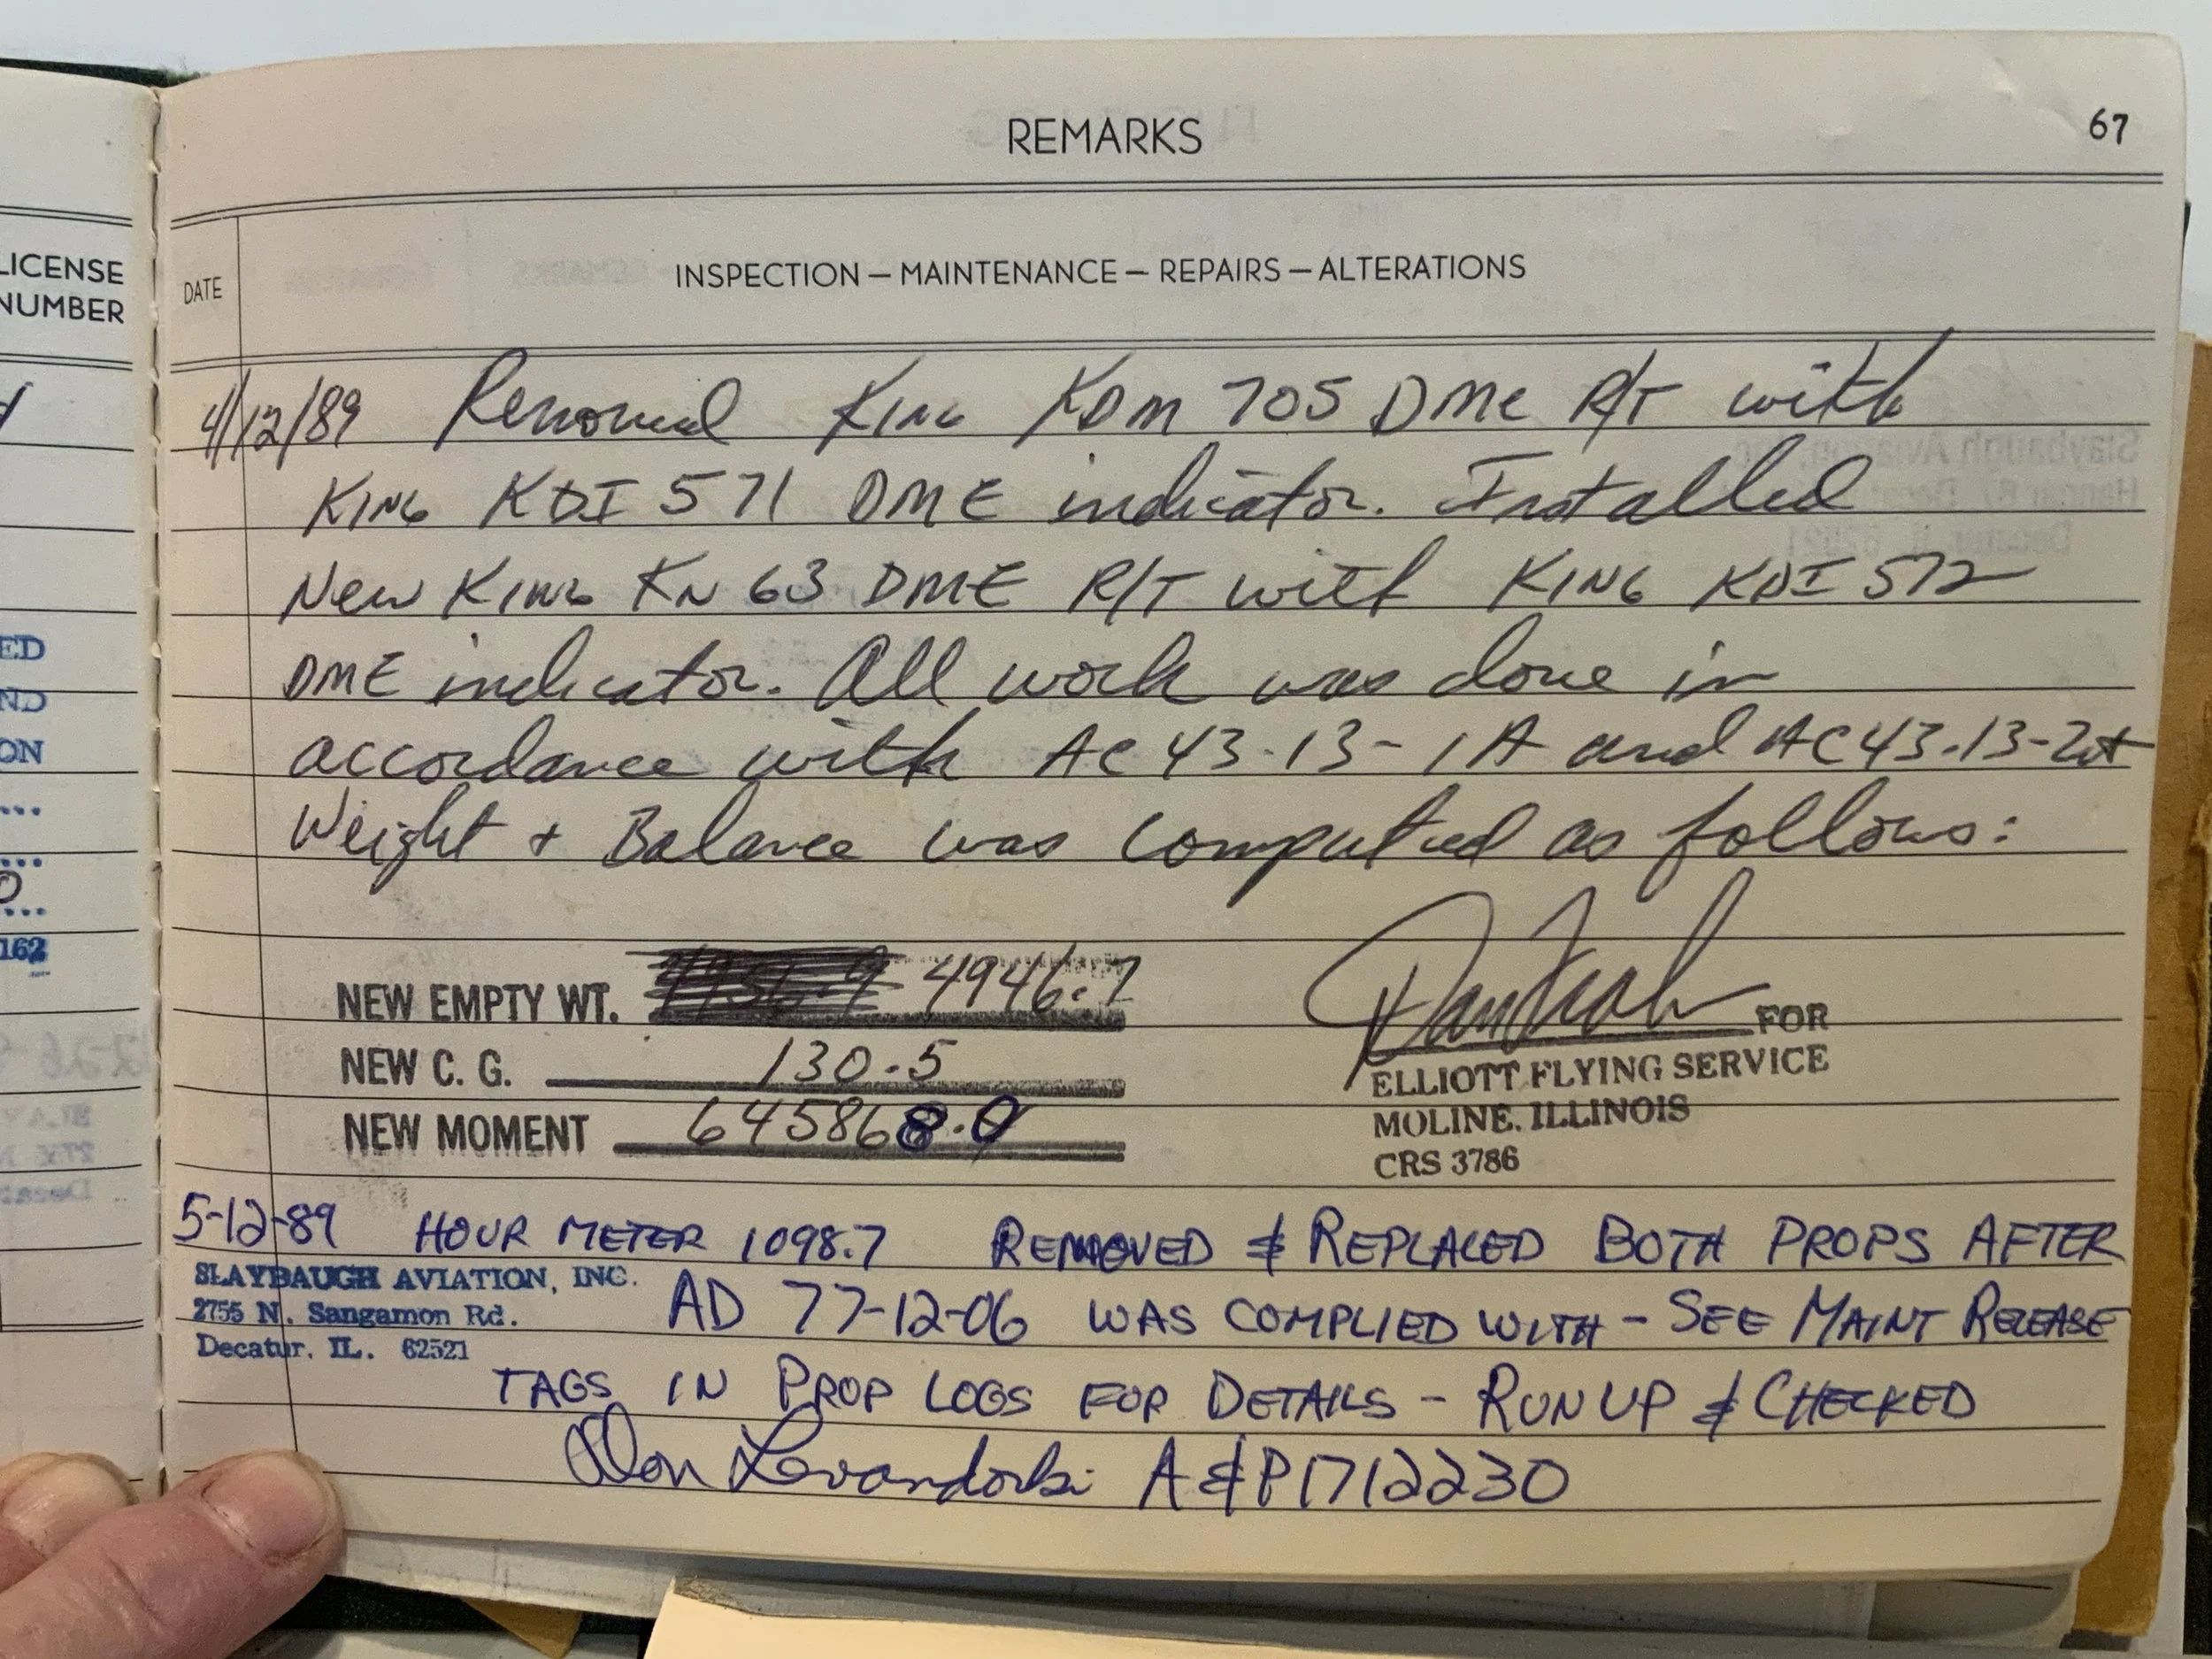 REMARKS
67
LICENSE
NUMBER
DATE
INSPECTION — MAINTENANCE — REPAIRS — ALTERATIONS
4/12/89 Removed King KDM 705 DME R/T with
King KDI 571 DME indicator. Installed
New King KN 63 DME R/T with King KDI 572
DME indicator. All work was done in
accordance with AC 43-13-1A and AC 43-13-2A
Weight + Balance was computed as follows:
NEW EMPTY WT. 4946.7
NEW C. G. 130.5
NEW MOMENT 645868.0
FOR
ELLIOTT FLYING SERVICE
MOLINE, ILLINOIS
CRS 3786
5-12-89 HOUR METER 1098.7 REMOVED & REPLACED BOTH PROPS AFTER
SLAYBAUGH AVIATION, INC.
2755 N. Sangamon Rd.
Decatur, IL. 62521
AD 77-12-06 WAS COMPLIED WITH - SEE MAINT RELEASE
TAGS IN PROP LOGS FOR DETAILS - RUN UP & CHECKED
Don Levandoski A&P 1712230
ED
ND
ON
162